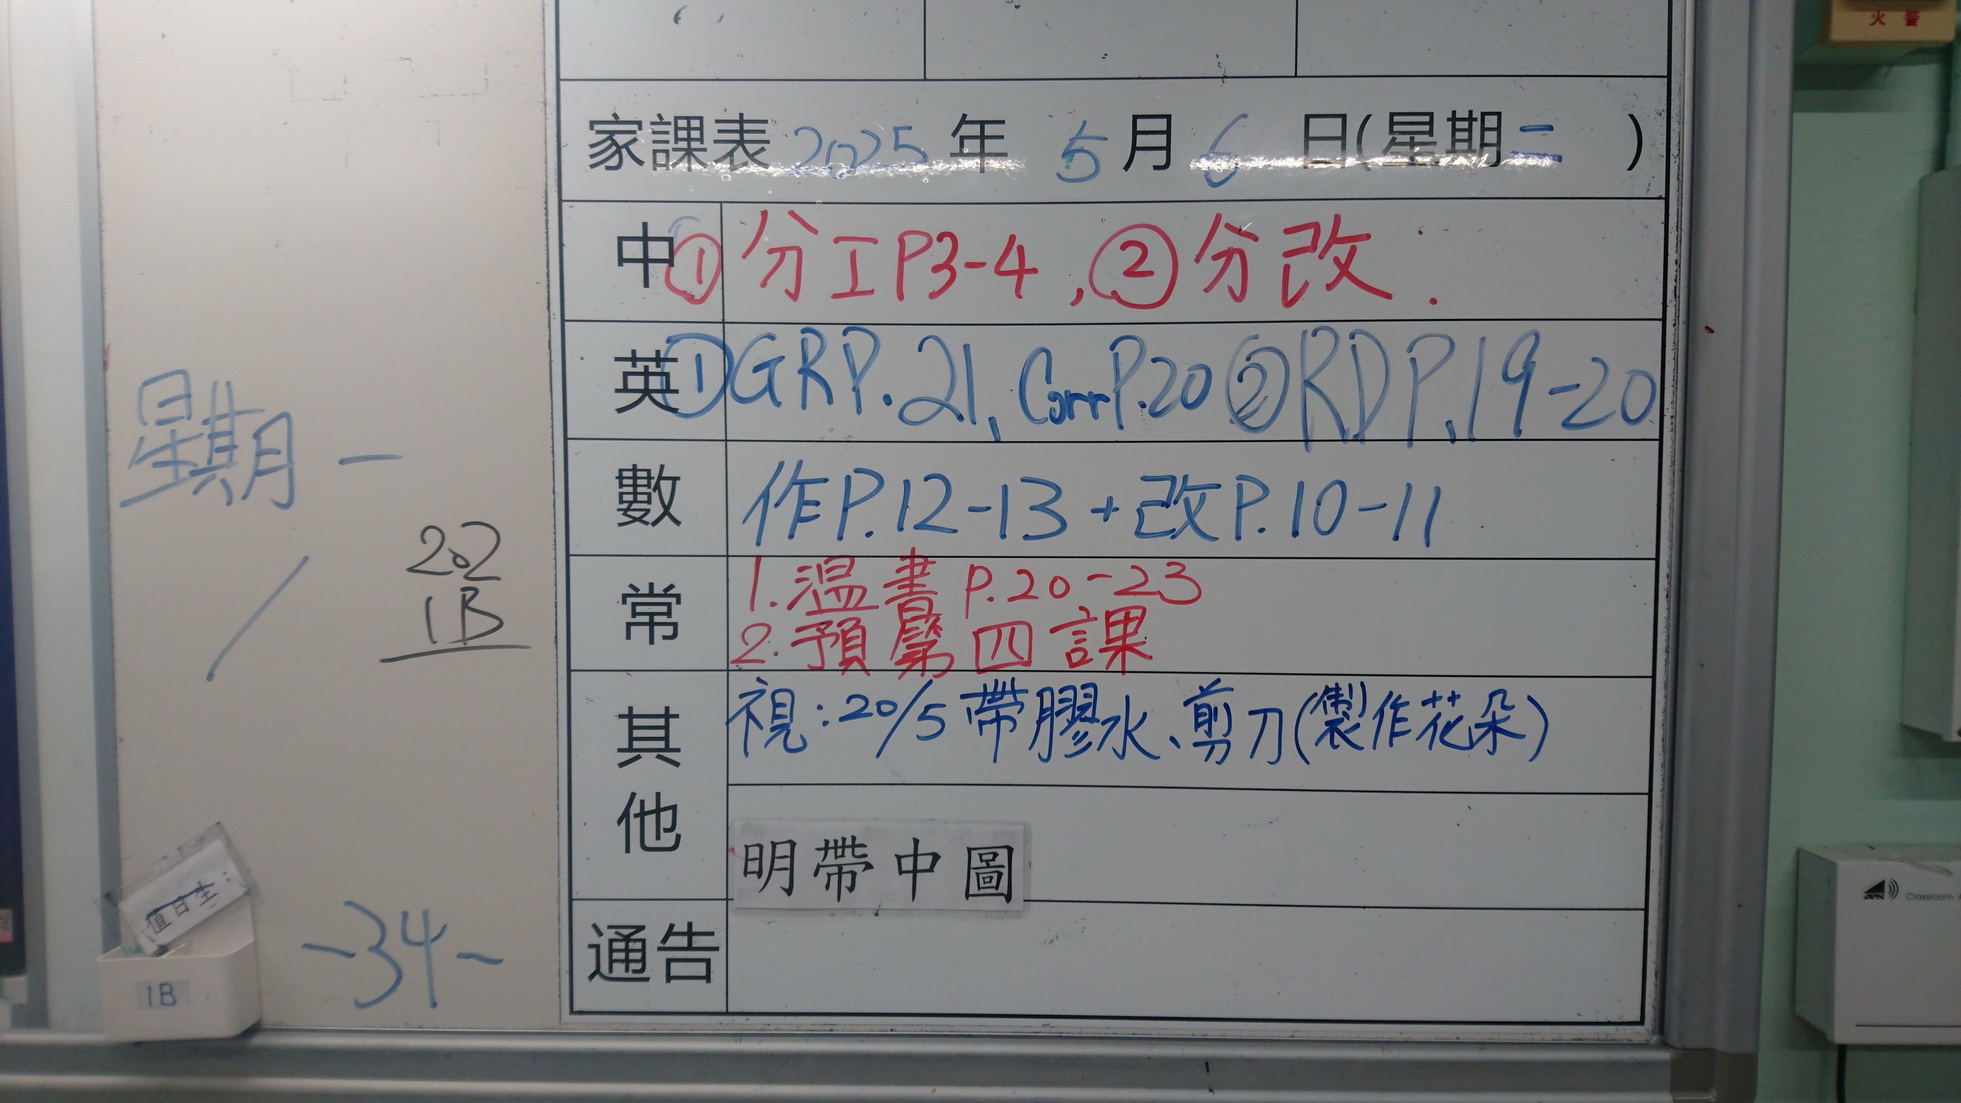 火警
家課表 2025 年 5 月 6 日(星期二 )
中 ① 分工P3-4，② 分改：
英 ① GRP.21, CorrP.20 ② RDP.19-20
數 作P.12-13 + 改P.10-11
常 1. 溫書 P.20-23
2. 預 第四課
其他 視：20/5 帶膠水、剪刀(製作花朵)
明帶中圖
通告
星期一
202
1B
值日生:
1B
~34~
Classroom